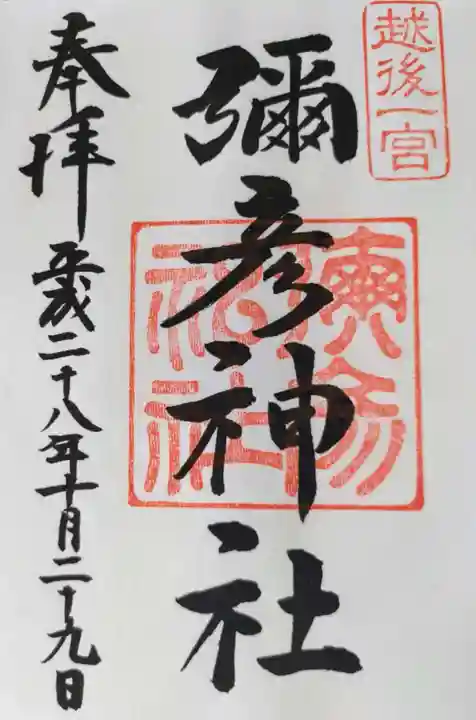 越後一宮
彌彦神社
奉拝
平成二十八年十月二十九日